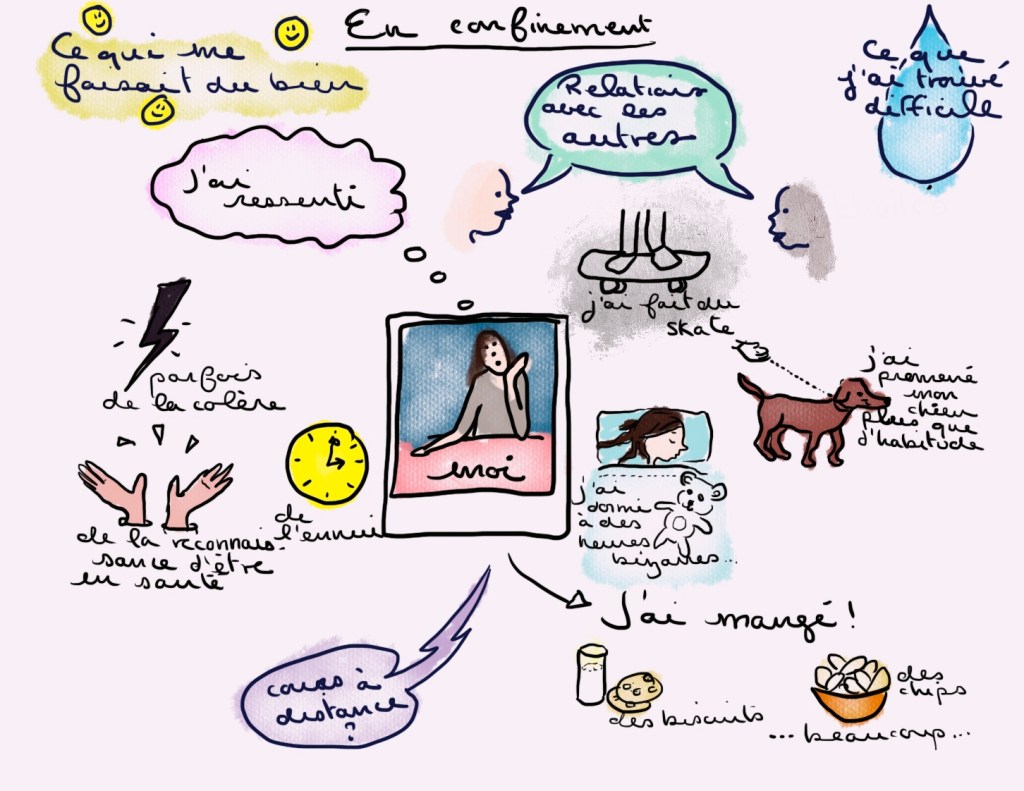 En confinement
Ce qui me
faisait du bien
Relations
avec les
autres
Ce que
j'ai trouvé
difficile
J'ai
ressenti
j'ai fait du
skate
j'ai
promené
mon
chien
plus que
d'habitude
parfois
de la colère
moi
de
l'ennui
j'ai
dormi
à des
heures
bizarres...
de la reconnais-
sance d'être
en santé
J'ai mangé!
cours à
distance
?
des biscuits
des
chips
... beaucoup...